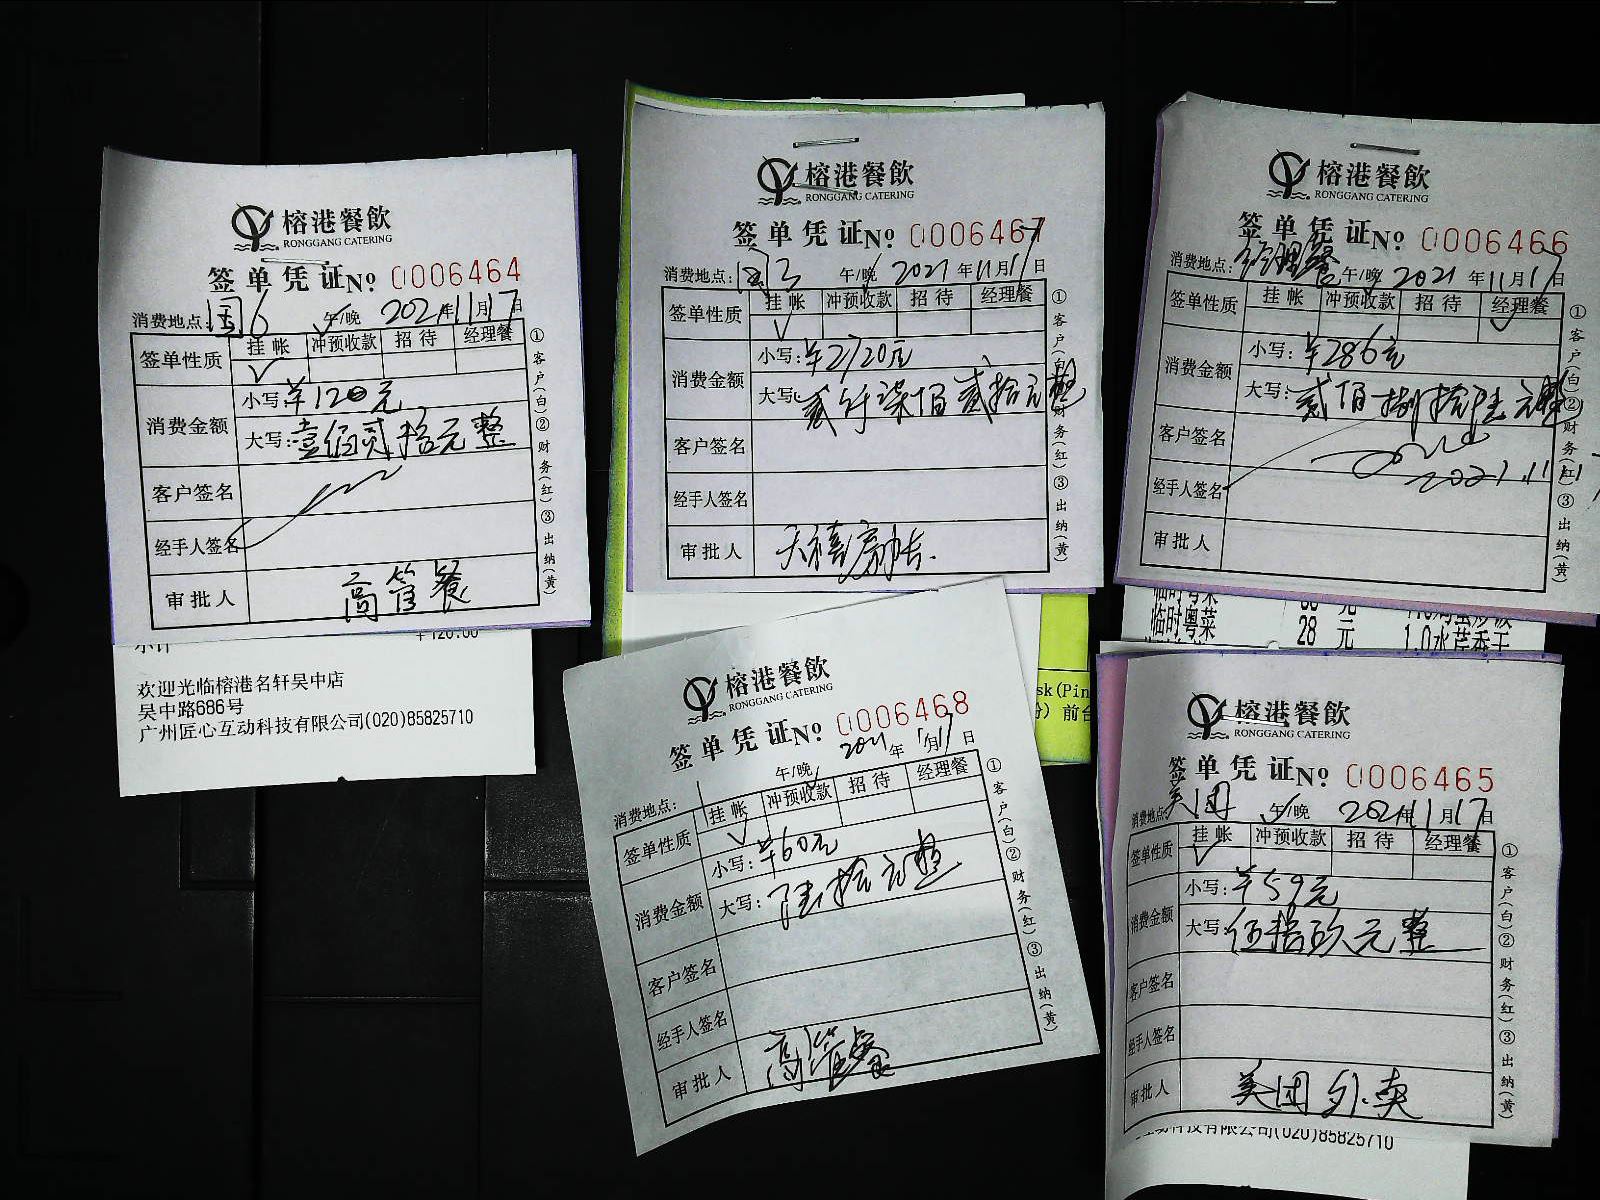 榕港餐飲
RONGGANG CATERING
签单凭证 № 0006464
消费地点: 国6 午/晚 2021年11月17日
签单性质 挂帐 冲预收款 招待 经理餐
消费金额 小写: ¥120元
大写: 壹佰贰拾元整
客户签名
经手人签名
审批人 高管餐
①客户(白)②财务(红)③出纳(黄)
小计 ¥120.00
欢迎光临榕港名轩吴中店
吴中路686号
广州匠心互动科技有限公司(020)85825710
榕港餐飲
RONGGANG CATERING
签单凭证 № 0006467
消费地点: 国3 午/晚 2021年11月17日
签单性质 挂帐 冲预收款 招待 经理餐
消费金额 小写: ¥2720元
大写: 贰仟柒佰贰拾元整
客户签名
经手人签名
审批人 天禧房
①客户(白)②财务(红)③出纳(黄)
sk(Pin
) 前台
榕港餐飲
RONGGANG CATERING
签单凭证 № 0006466
消费地点: 经理餐 午/晚 2021年11月17日
签单性质 挂帐 冲预收款 招待 经理餐
消费金额 小写: ¥286元
大写: 贰佰捌拾陆元整
客户签名 2021.11.17
经手人签名
审批人
①客户(白)②财务(红)③出纳(黄)
临时粤菜
临时粤菜 28 元 1.0水芹香干
榕港餐飲
RONGGANG CATERING
签单凭证 № 0006468
消费地点: 午/晚 2021年11月17日
签单性质 挂帐 冲预收款 招待 经理餐
消费金额 小写: ¥60元
大写: 陆拾元整
客户签名
经手人签名
审批人 高管餐
①客户(白)②财务(红)③出纳(黄)
榕港餐飲
RONGGANG CATERING
签单凭证 № 0006465
消费地点: 美团 午/晚 2021年11月17日
签单性质 挂帐 冲预收款 招待 经理餐
消费金额 小写: ¥59元
大写: 伍拾玖元整
客户签名
经手人签名
审批人 美团外卖
①客户(白)②财务(红)③出纳(黄)
互动科技有限公司(020)85825710